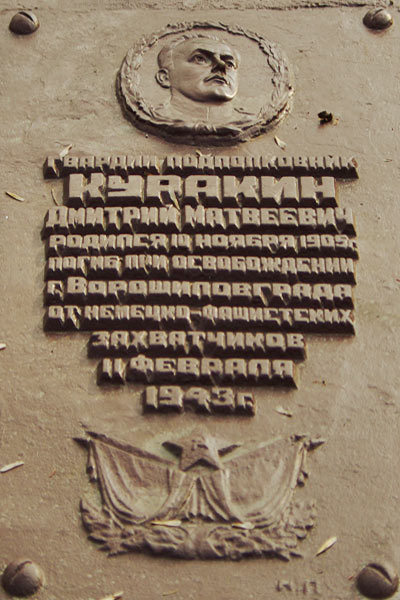 Гвардии подполковник
Куракин
Дмитрий Матвеевич
родился 10 ноября 1909г.
погиб при освобождении
г. Ворошиловграда
от немецко-фашистских
захватчиков
11 февраля
1943г.